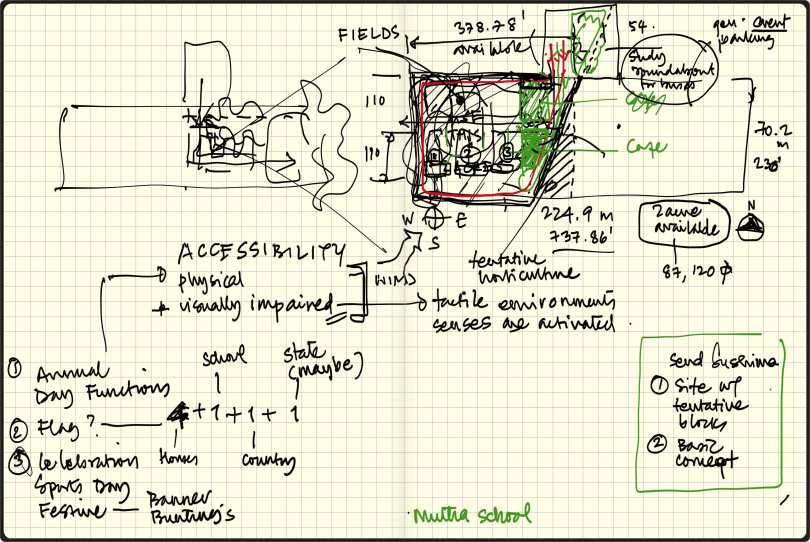 FIELDS
378.78'
available
54.
parking
Study
roundabout
for buses
110
110
Cafe
70.2
m
230'
1
2
3
W E
S
N
224.9 m
737.86'
2 acre
available
87,120
ACCESSIBILITY
physical
visually impaired
WIND
tentative
horticulture
tactile environments
senses are activated.
1 Annual
Day Functions
2 Flag?
3 Celebration
Sports Day
Festive — Banner
Bunting's
school
state
(maybe)
4 + 1 + 1 + 1
Houses
Country
send Sushima
1 Site w/
tentative
blocks
2 Basic
concept
Mutha school